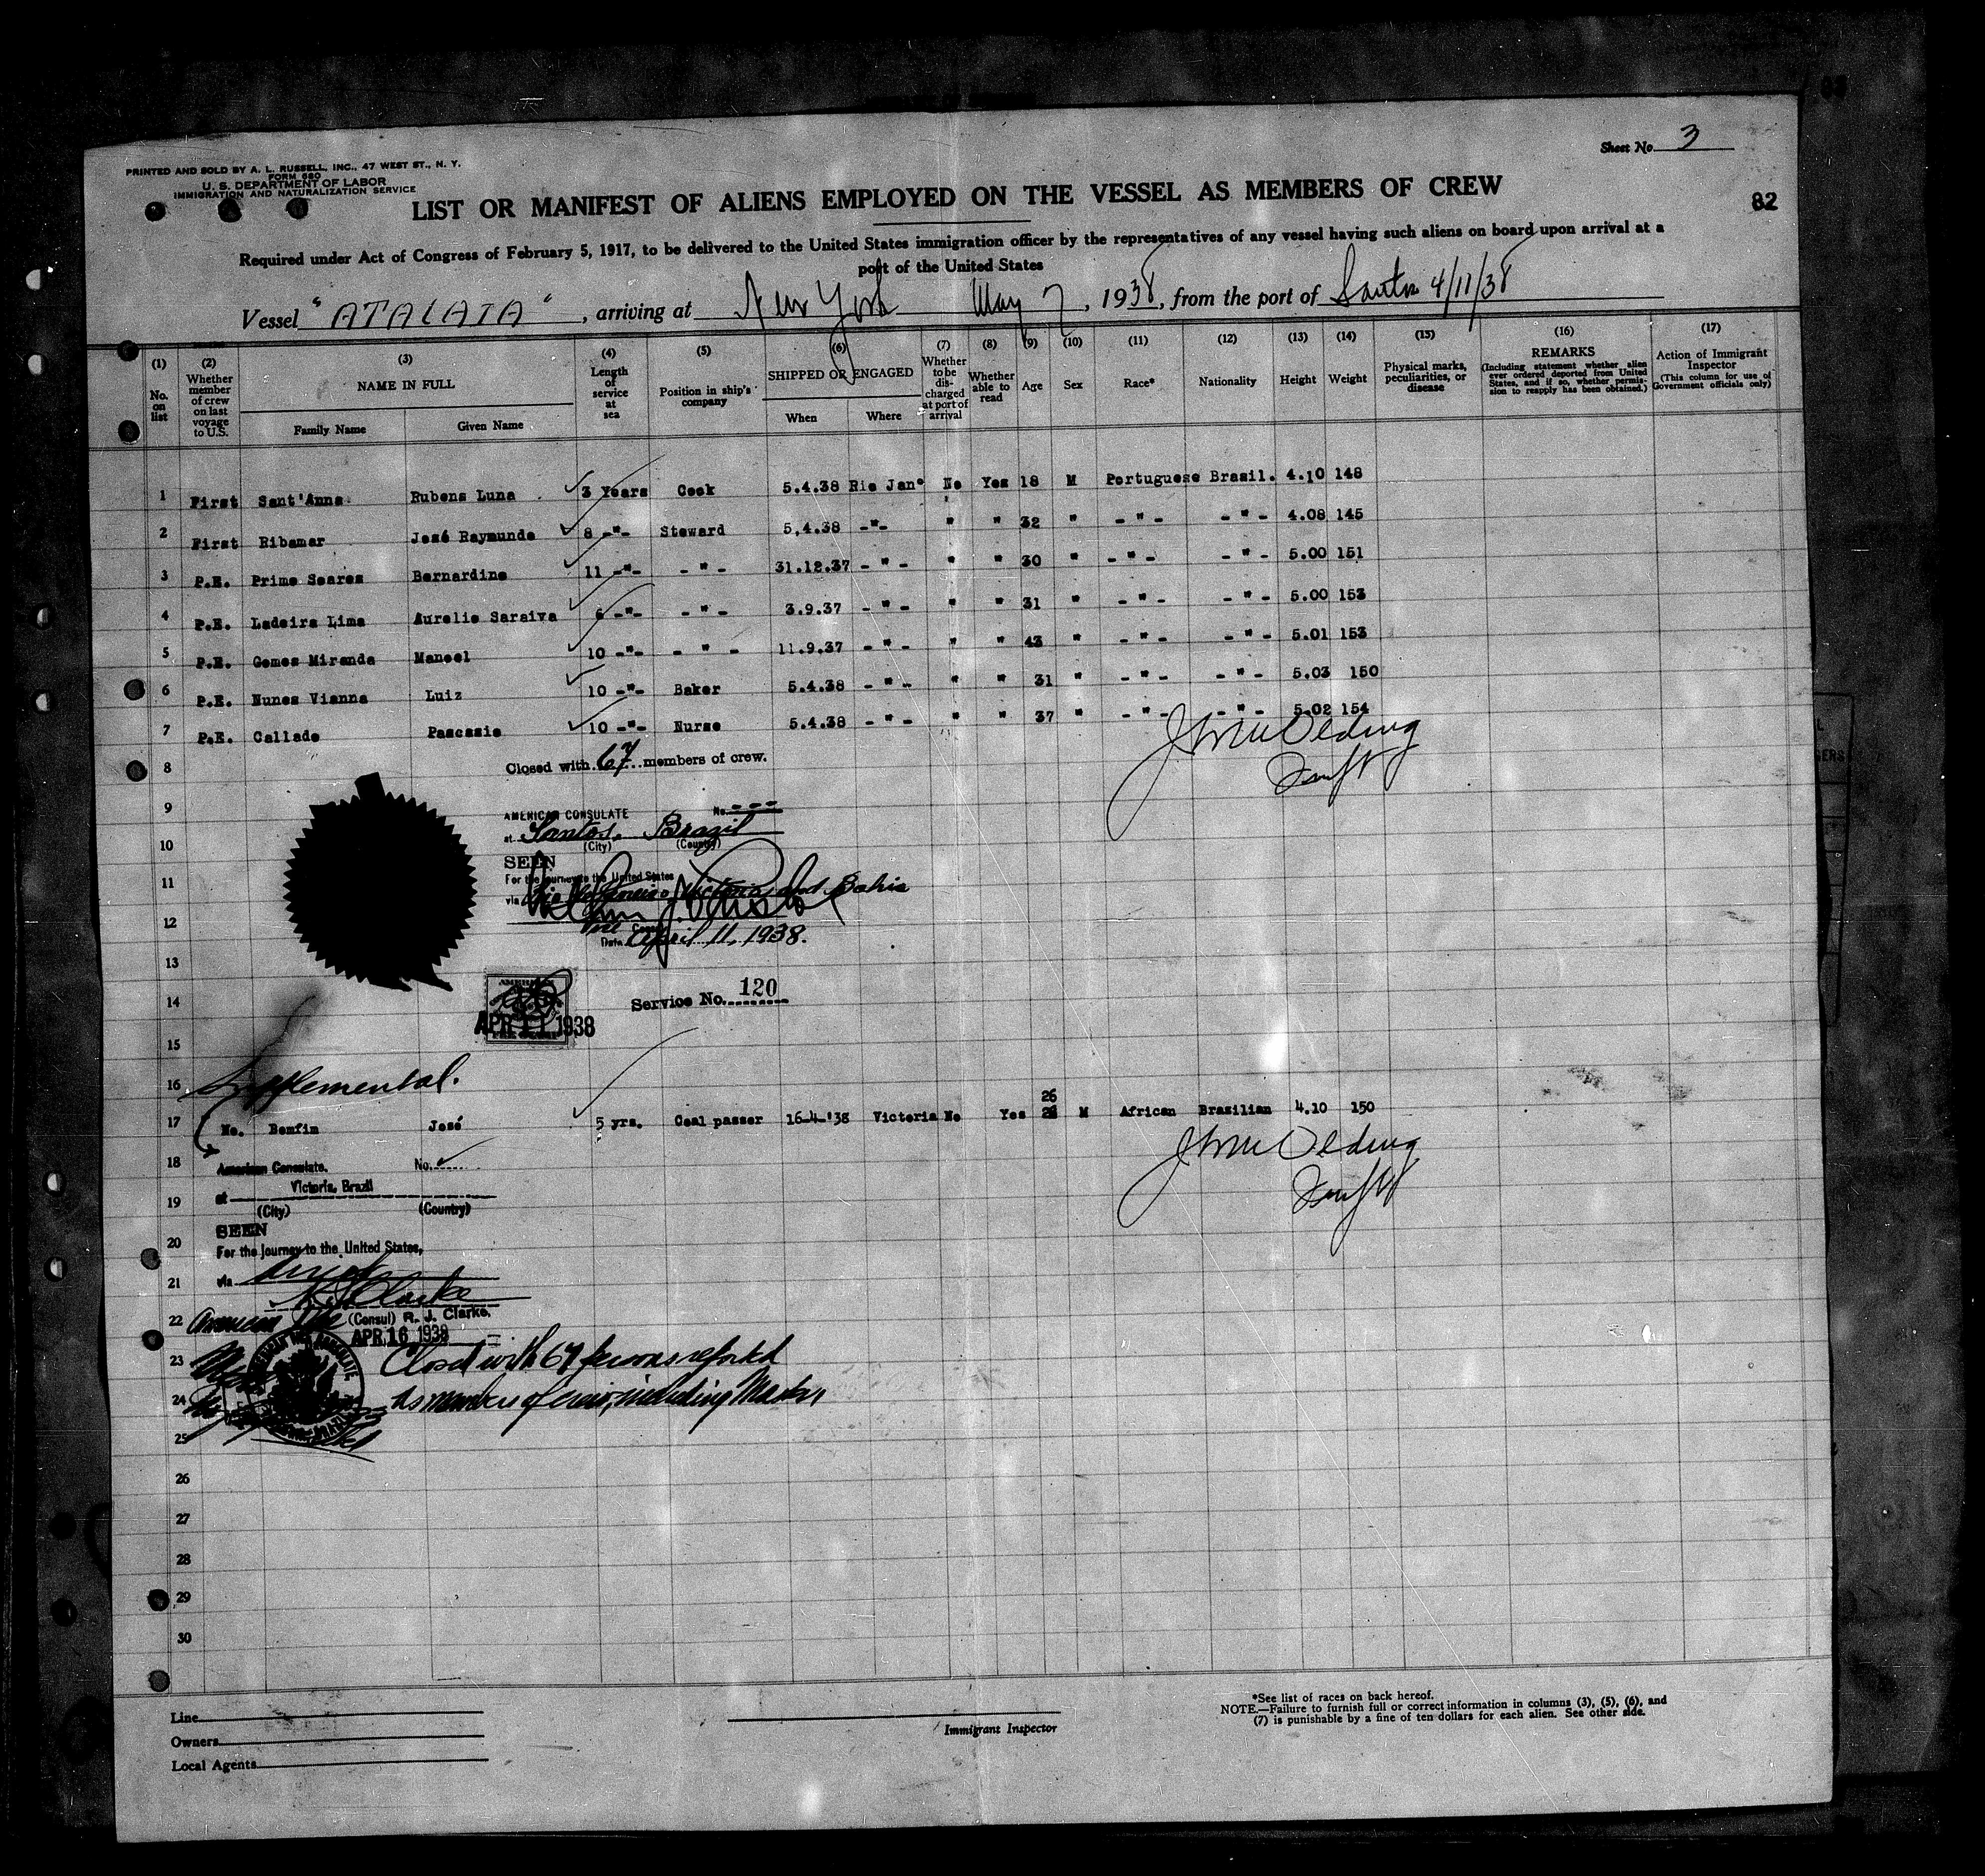 Sheet No. 3
PRINTED AND SOLD BY A. L. RUSSELL, INC., 47 WEST ST., N. Y.
FORM 680
U. S. DEPARTMENT OF LABOR
IMMIGRATION AND NATURALIZATION SERVICE
LIST OR MANIFEST OF ALIENS EMPLOYED ON THE VESSEL AS MEMBERS OF CREW
82
Required under Act of Congress of February 5, 1917, to be delivered to the United States immigration officer by the representatives of any vessel having such aliens on board upon arrival at a
port of the United States
Vessel "ATALAIA", arriving at New York May 7, 1938, from the port of Santos 4/11/38
(1) No. on list
(2) Whether member of crew on last voyage to U.S.
(3) NAME IN FULL
Family Name Given Name
(4) Length of service at sea
(5) Position in ship's company
(6) SHIPPED OR ENGAGED
When Where
(7) Whether to be discharged at port of arrival
(8) Whether able to read
(9) Age
(10) Sex
(11) Race*
(12) Nationality
(13) Height
(14) Weight
(15) Physical marks, peculiarities, or disease
(16) REMARKS (Including statement whether alien ever ordered deported from United States, and if so, whether permission to reapply has been obtained.)
(17) Action of Immigrant Inspector (This column for use of Government officials only)
1 First Sant'Anna Rubens Luna 3 Years Cook 5.4.38 Rio Janº No Yes 18 M Portuguese Brasil. 4.10 148
2 First Ribamar José Raymundo 8 -"- Steward 5.4.38 -"- " " 32 " -"- -"- 4.08 145
3 P.E. Primo Soares Bernardino 11 -"- -"- 31.12.37 -"- " " 30 " -"- -"- 5.00 151
4 P.E. Ladeira Lima Aurelio Saraiva 6 -"- -"- 3.9.37 -"- " " 31 " -"- -"- 5.00 153
5 P.E. Gomes Miranda Manoel 10 -"- -"- 11.9.37 -"- " " 43 " -"- -"- 5.01 153
6 P.E. Nunes Vianna Luiz 10 -"- Baker 5.4.38 -"- " " 31 " -"- -"- 5.03 150
7 P.E. Callado Pascasio 10 -"- Nurse 5.4.38 -"- " " 37 " -"- -"- 5.02 154
8
Closed with 67 members of crew.
9
AMERICAN CONSULATE No. ---
at Santos, Brazil
10
(City) (Country)
SEEN
11
For the journey to the United States
via Rio de Janeiro, Victoria, and Bahia
12
Vice Consul
Date April 11, 1938.
13
14
Service No. 120
AMERICAN
APR 11 1938
15
16
Supplemental.
17 No. Bomfim José 5 yrs. Coal passer 16-4-'38 Victoria No Yes 26 M African Brasilian 4.10 150
18
American Consulate, No.
at Victoria, Brazil
19
(City) (Country)
SEEN
20
For the journey to the United States,
21
via direct
R J Clarke
22
American Vice (Consul) R. J. Clarke.
APR 16 1938
23
Closed with 67 persons reported
24
as members of crew, including Master
25
26
27
28
29
30
Line
Owners
Local Agents
Immigrant Inspector
*See list of races on back hereof.
NOTE.—Failure to furnish full or correct information in columns (3), (5), (6), and
(7) is punishable by a fine of ten dollars for each alien. See other side.